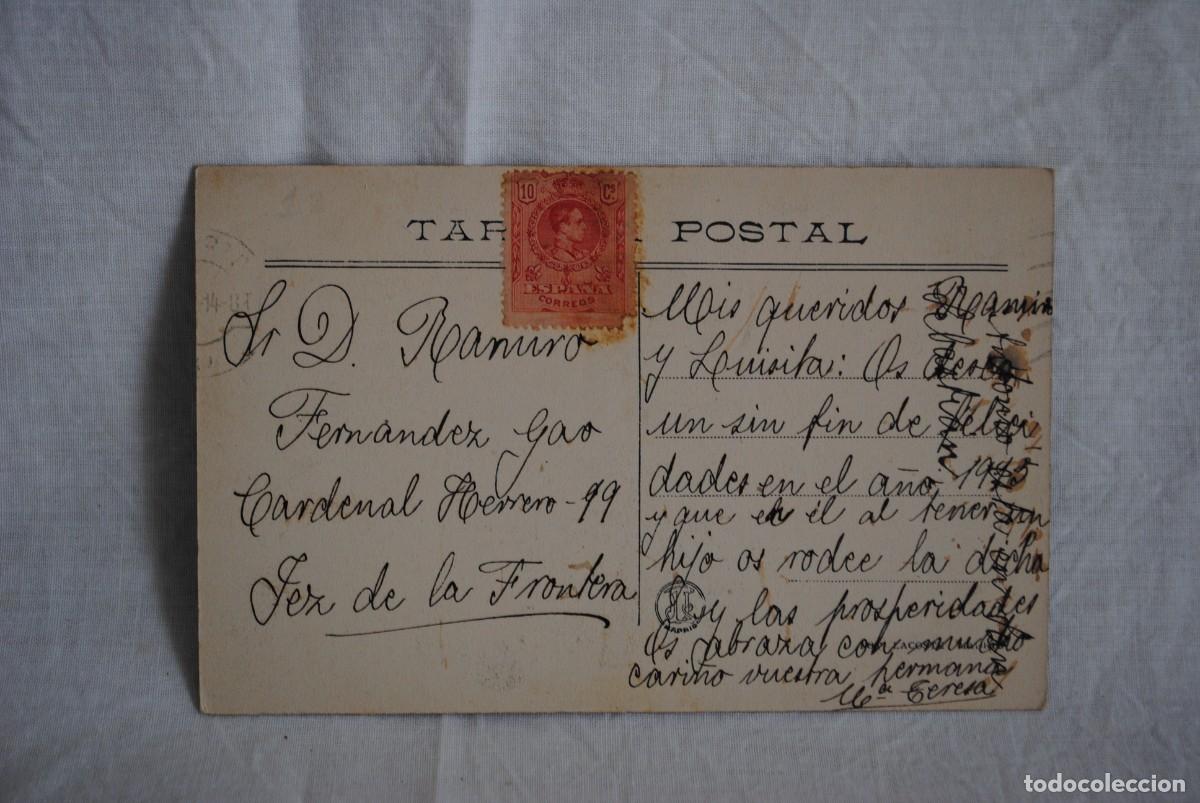 TAR POSTAL
10 Cs
ESPAÑA
CORREOS
14-
Sr D. Ramiro
Fernández Gao
Cardenal Herrero-99
Jez de la Frontera
Mis queridos Ramiro
y Luisita: Os deseo
un sin fin de felici
dades en el año, 1915
y que en él al tener un
hijo os rodee la dicha
y las prosperidades
Os abraza con mucho
cariño vuestra hermana
Mª Teresa
LACOSTE
todocoleccion